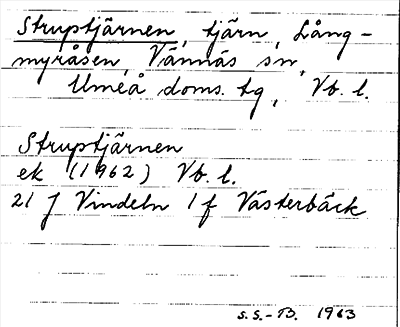 Struptjärnen, tjärn, Lång-
myråsen, Vännäs sn,
Umeå doms. tg, Vb. l.
Struptjärnen
ek (1962) Vb. l.
21 J Vindeln 1 f Västerbäck
S.S.-B. 1963